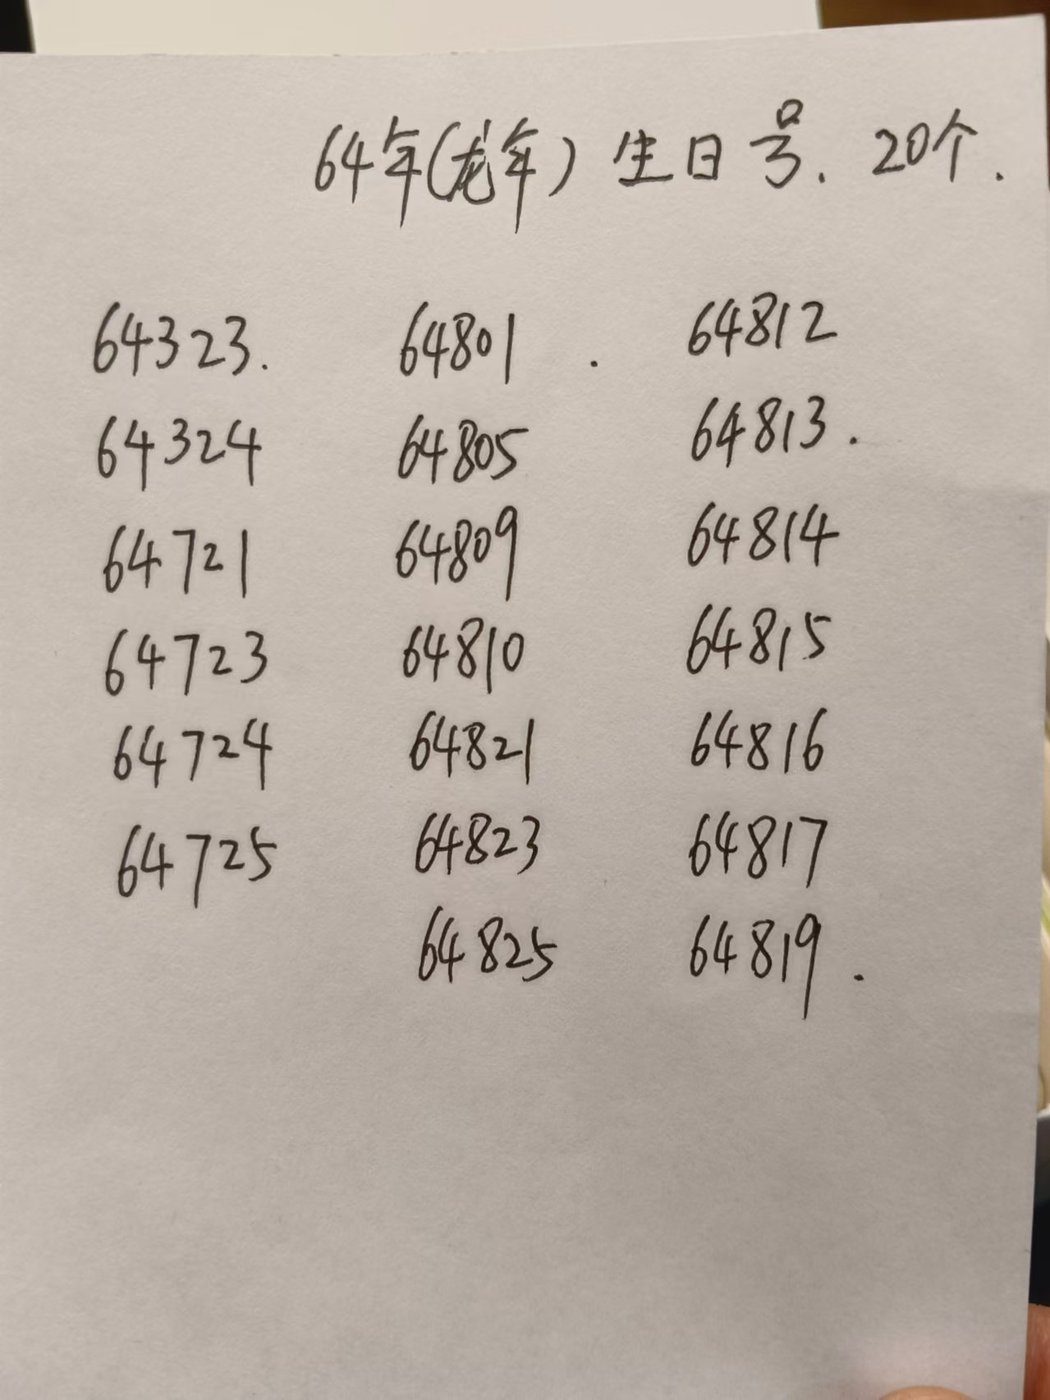 64年(龙年)生日号. 20个.
64323. 64801 . 64812
64324 64805 64813.
64721 64809 64814
64723 64810 64815
64724 64821 64816
64725 64823 64817
64825 64819.